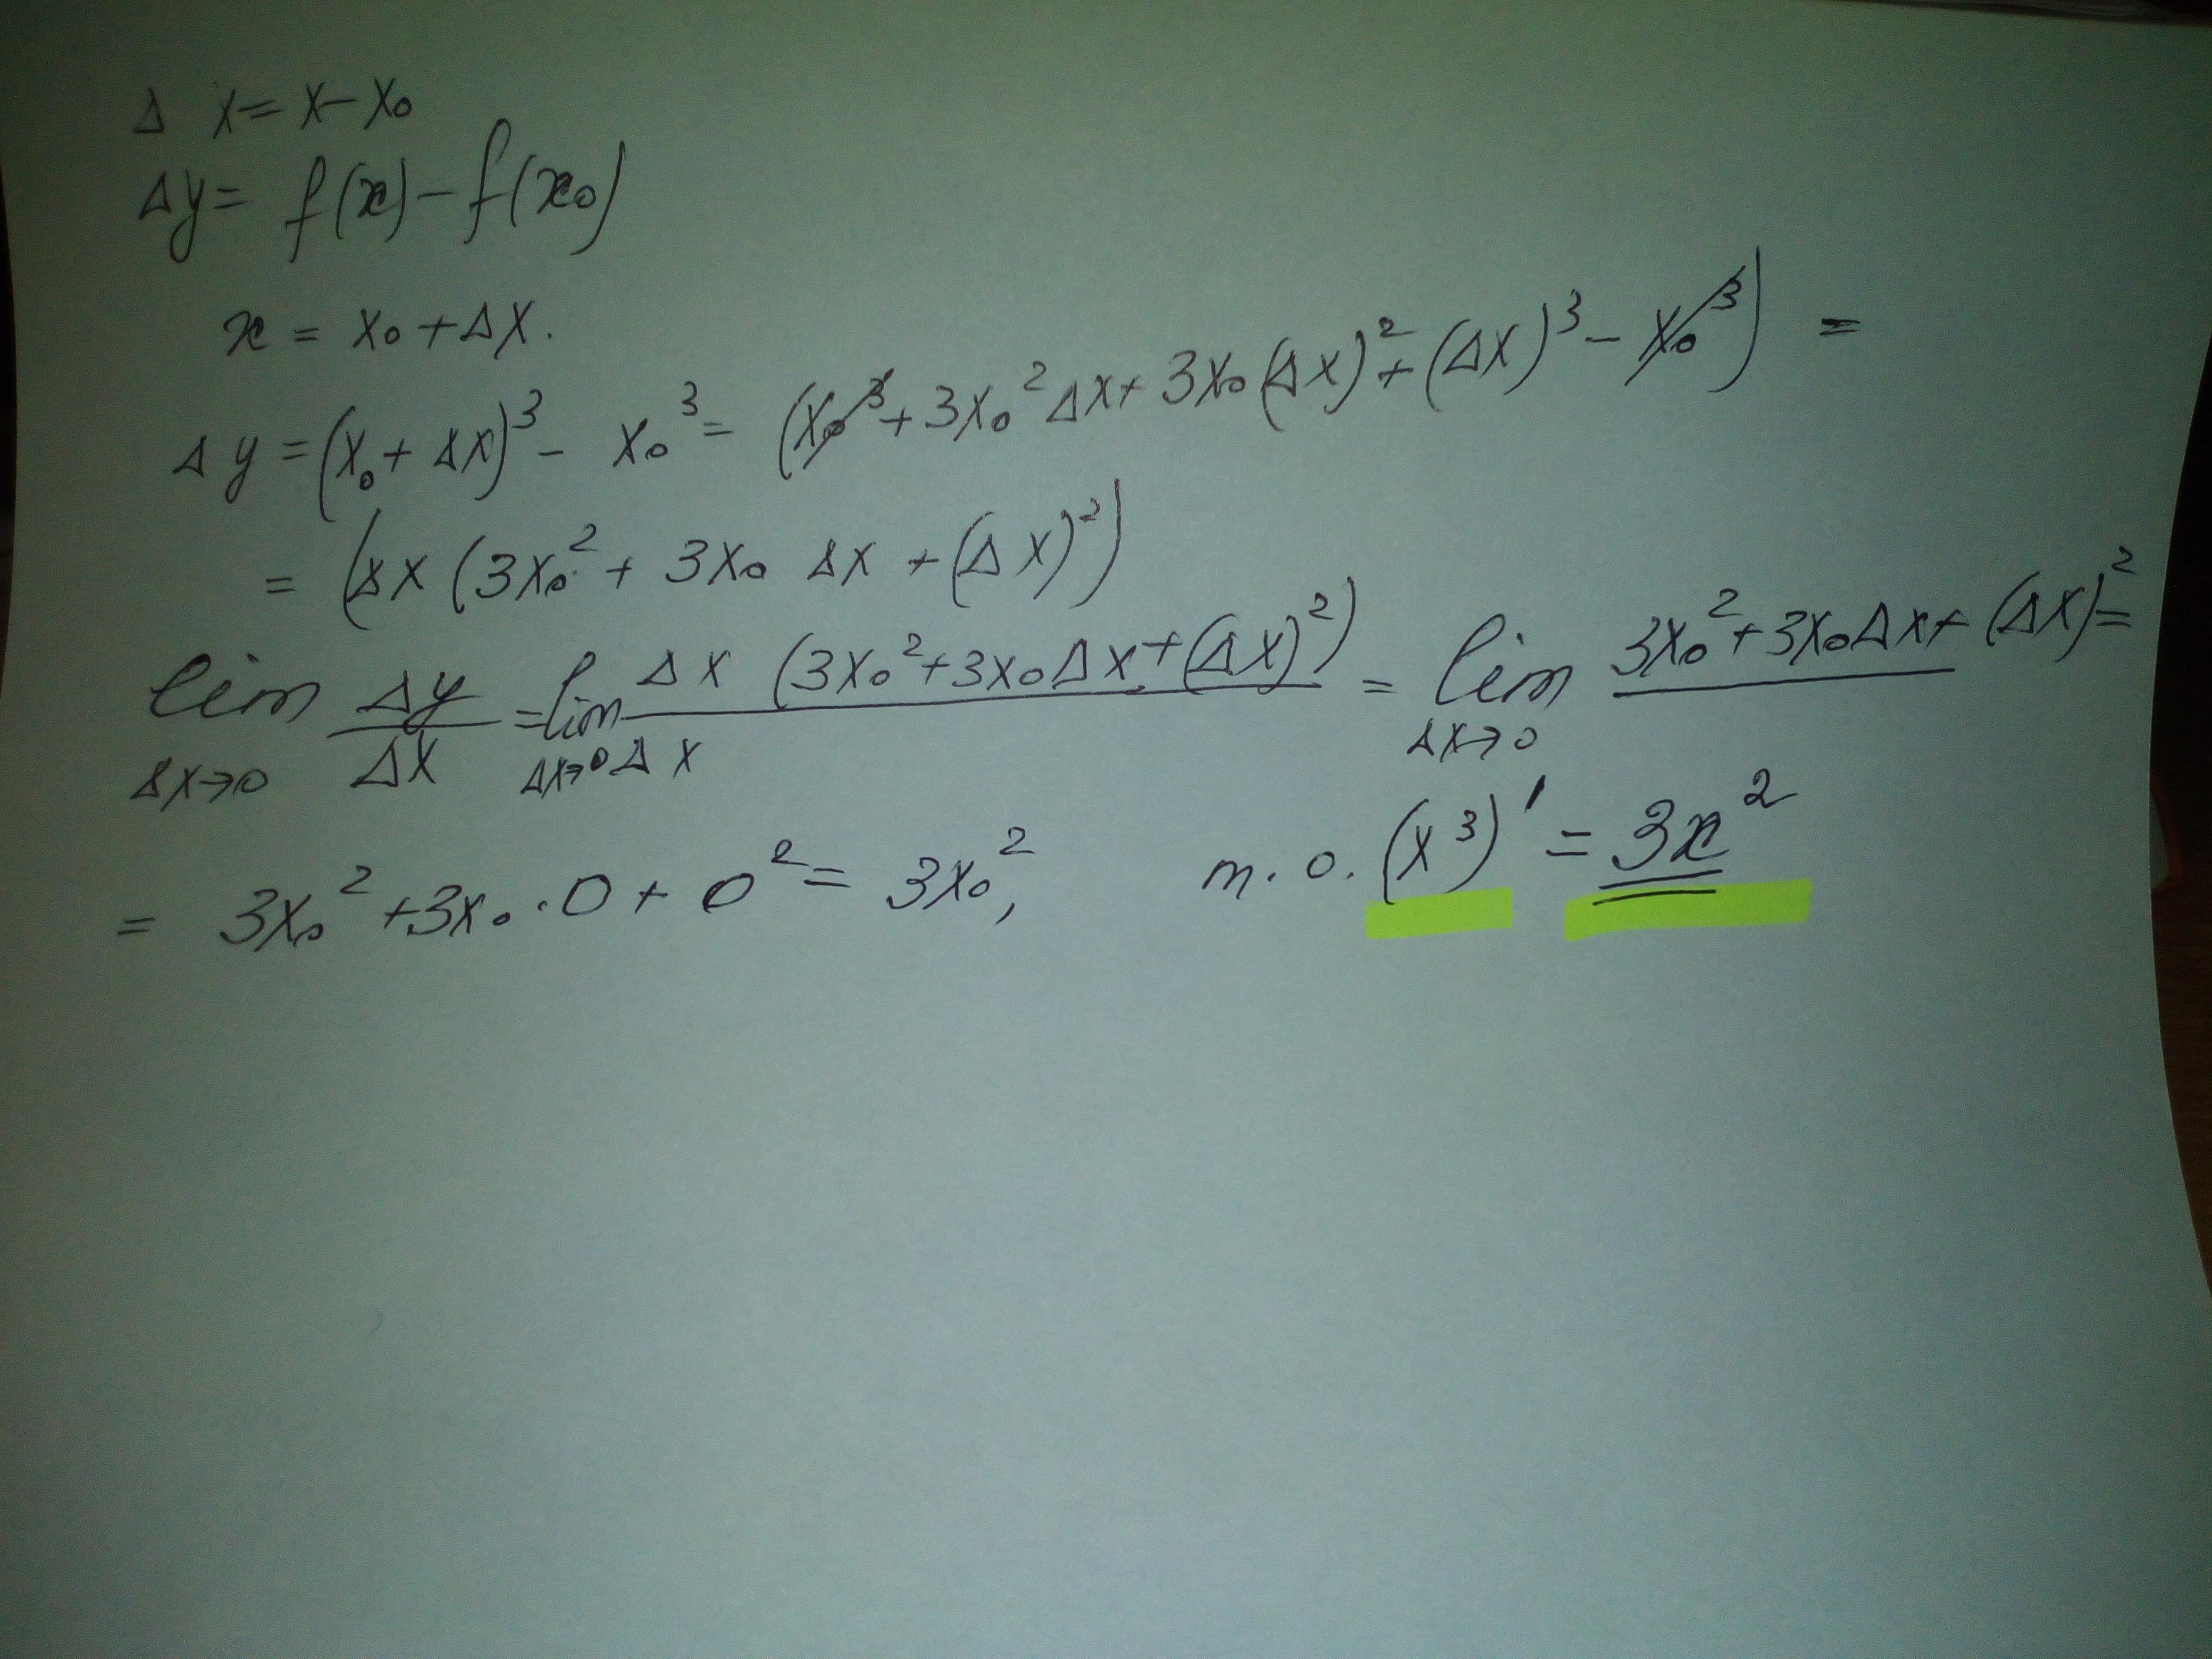 Δ x = x - x₀
Δy = f(x) - f(x₀)
x = x₀ + Δx.
Δ y = (x₀ + Δx)³ - x₀³ = (x₀³ + 3x₀² Δx + 3x₀ (Δx)² + (Δx)³ - x₀³) =
= (Δx (3x₀² + 3x₀ Δx + (Δx)²)
lim Δx→0 Δy/Δx = lim Δx→0 Δx (3x₀² + 3x₀Δx + (Δx)²)/Δx = lim Δx→0 3x₀² + 3x₀Δx + (Δx)² =
= 3x₀² + 3x₀ · 0 + 0² = 3x₀², т. о. (x³)' = 3x²